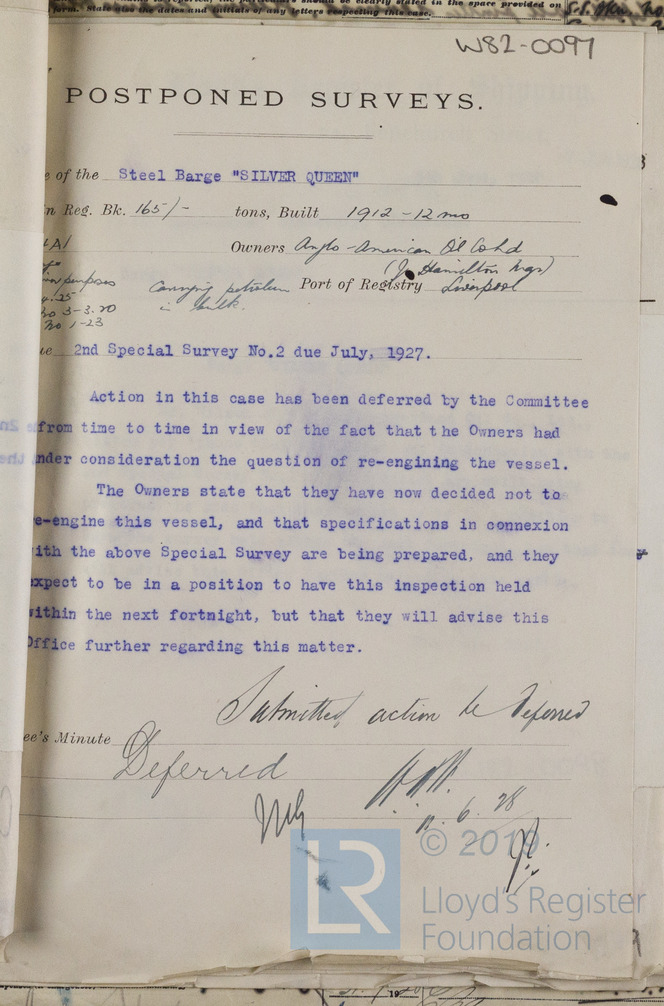 form. State also the dates and initials of any letters respecting this case.
W82-0097
POSTPONED SURVEYS.
e of the Steel Barge "SILVER QUEEN"
n Reg. Bk. 165/- tons, Built 1912-12 mo
Owners Anglo-American Oil Co Ltd
(J. Hamilton Mgr)
purposes Carrying petroleum in bulk.
Port of Registry Liverpool
4.25
no 3-3.20
no 1-23
ue 2nd Special Survey No.2 due July, 1927.
Action in this case has been deferred by the Committee
from time to time in view of the fact that the Owners had
nder consideration the question of re-engining the vessel.
The Owners state that they have now decided not to
e-engine this vessel, and that specifications in connexion
ith the above Special Survey are being prepared, and they
expect to be in a position to have this inspection held
within the next fortnight, but that they will advise this
Office further regarding this matter.
Submitted action be deferred
ee's Minute
Deferred
6. 28
© 2019
LR
Lloyd's Register
Foundation